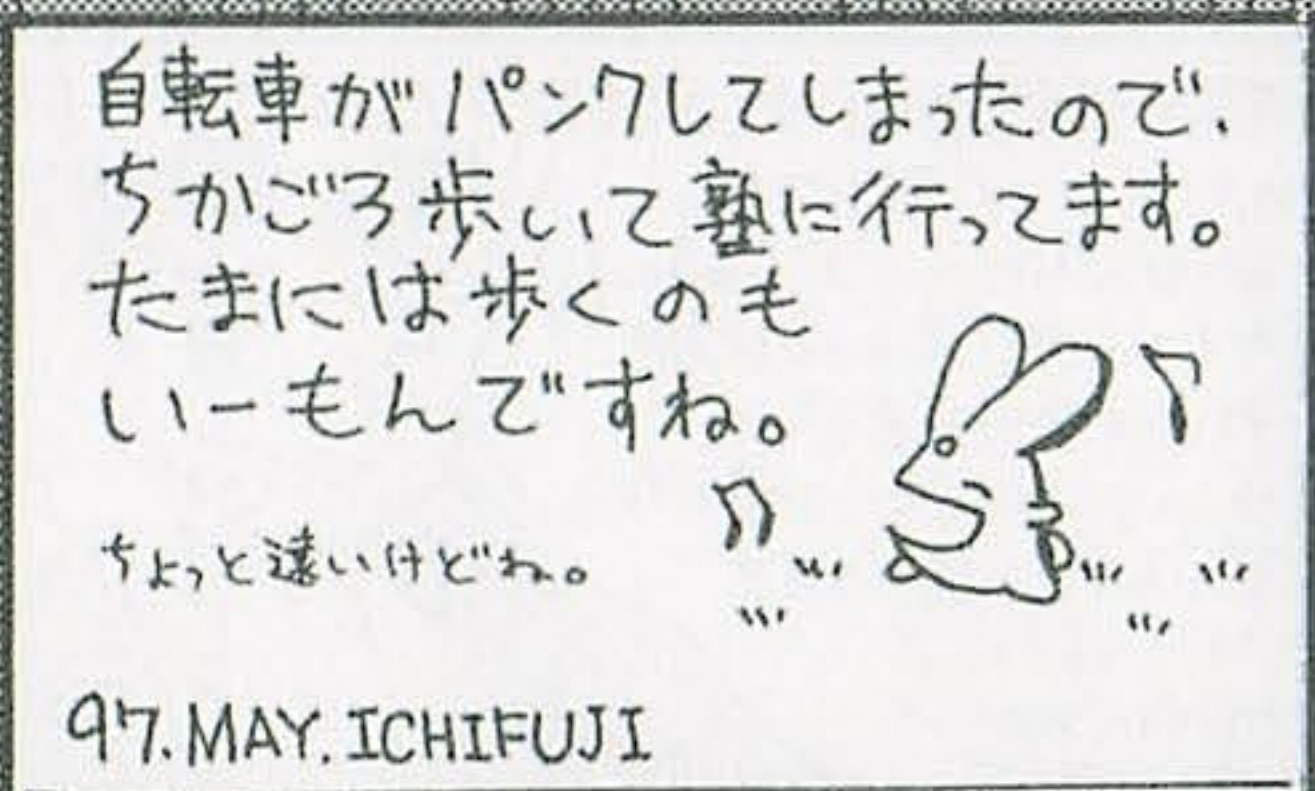 自転車がパンクしてしまったので、
ちかごろ歩いて塾に行ってます。
たまには歩くのも
いーもんですね。
ちょっと遠いけどね。
97.MAY.ICHIFUJI